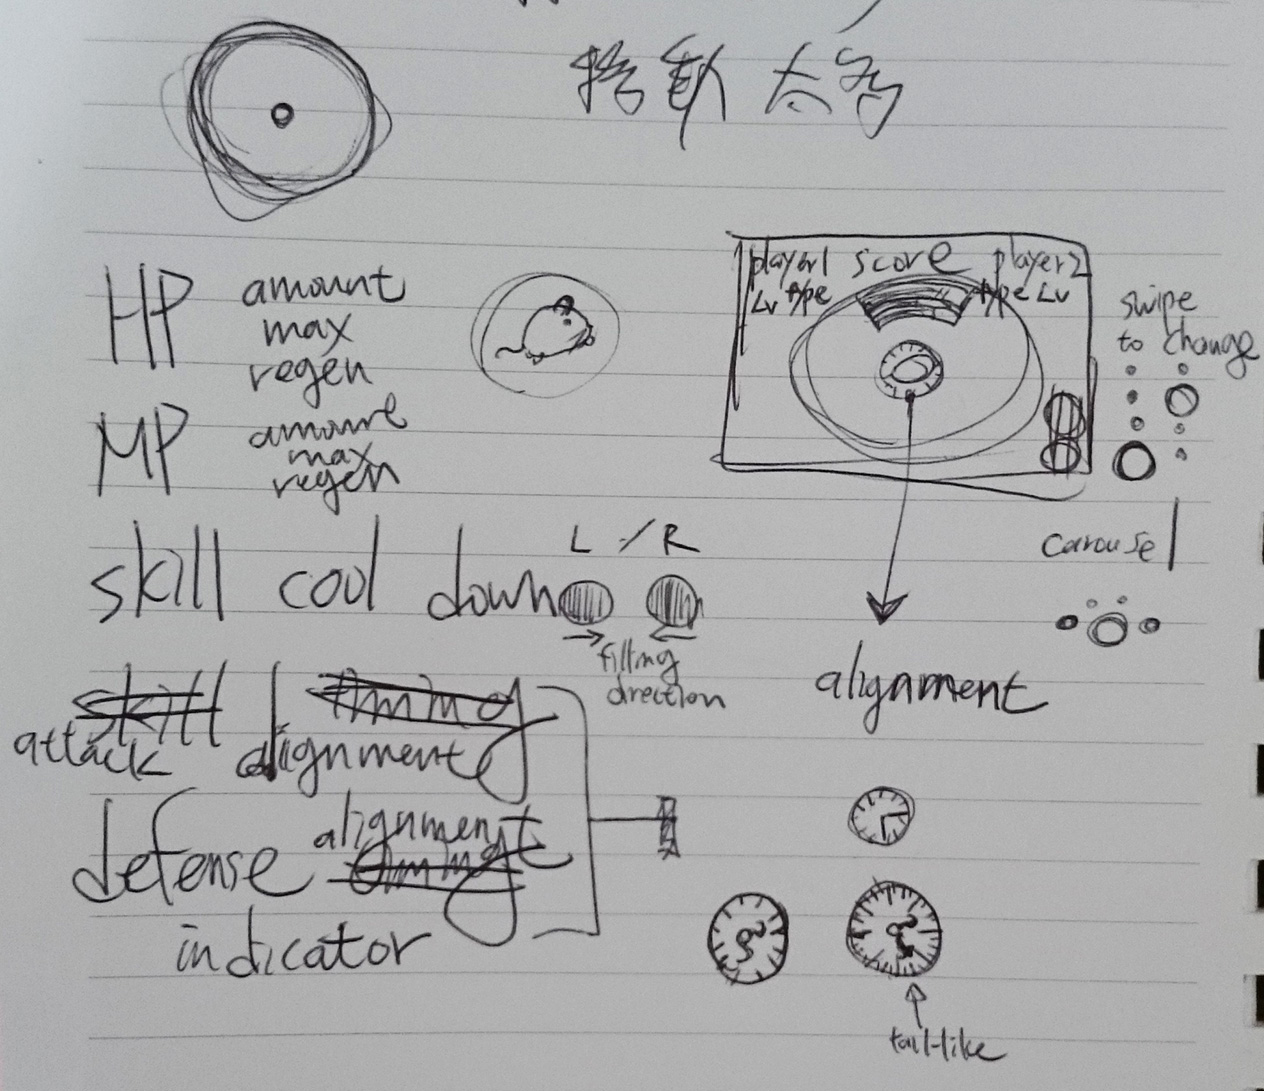 太多
HP amount
max
regen
MP amount
max
regen
player1 score player2
Lv type type Lv
swipe
to change
carousel
skill cool down L / R
filling
direction
alignment
attack alignment
defense alignment
indicator
tail-like